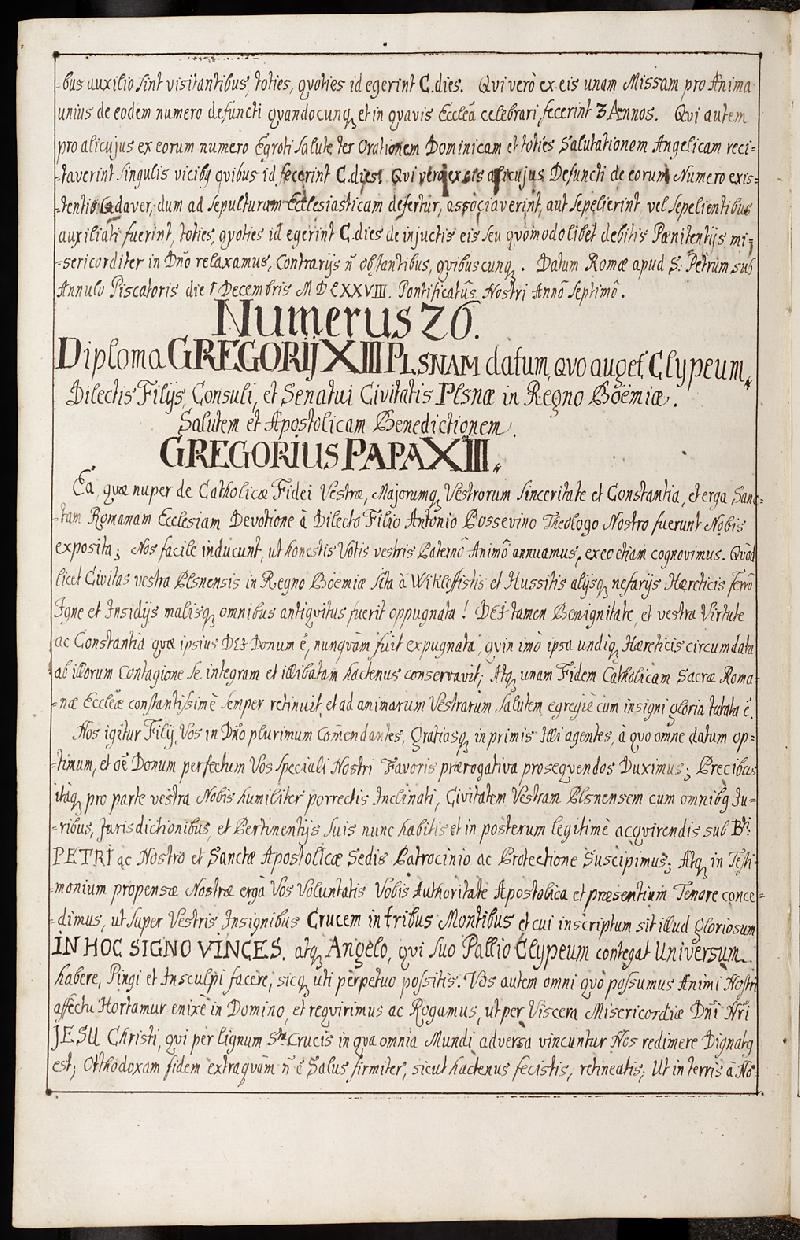 -bus auxilio sint visitantibus, toties, quoties id egerint C. dies. Qui verò ex eis unam Missam pro Anima
unius de eodem numero defuncti quandocunq, et in quavis Ecclêa celebrari fecerint 3 Annos. Qui autem
pro alicujus ex eorum numero Egroti salute ter Orationem Dominicam et toties Salutationem Angelicam reci-
-taverint singulis vicibq quibus id fecerint C. dies. Qui vero ex eis alicujus Defuncti de eorum Numero exis-
-tentis Cadaver, dum ad sepulturam Ecclesiasticam defertur, associaverint, aut sepelierint vel sepelientibus
auxiliati fuerint, toties, quoties id egerint C. dies de injuctis eis seu quomodolibet debitis Pœnitentijs mi-
-sericorditer in Dño relaxamus, Contrarijs ñ obstantibus, quibuscunq. Datum Romæ apud S: Petrum sub
Annulo Piscatoris die 1 Decembris MDLXXVIII. Pontificatûs Nostri Annô Septimô.
Numerus 26.
Diploma GREGORIJ XIII PLSNAM datum, quo auget Clypeum.
Dilectis Filijs, Consuli, et Senatui Civitatis Plsnæ in Regno Boëmiæ.
Salutem et Apostolicam Benedictionem.
GREGORIUS PAPA XIII.
Ea, quæ nuper de Catholicæ Fidei Vestræ, Majorumq, Vestrorum sinceritate et Constantia, et erga Sanc-
-tam Romanam Ecclesiam Devotione à Dilecto Filio Antonio Possevino Theologo Nostro fuerunt Nobis
exposita; Nos facile inducunt, ut honestis Votis vestris Paternô Animô annuamus, ex eo etiam cognovimus. Quòd
licet Civitas vestra Plsnensis in Regno Boëmiæ sita à Wikleffistis et Hussitis alysq, nefarijs Hæreticis ferrô
Igne et Insidijs malisq, omnibus antiquitus fuerit oppugnata! DEI tamen Benignitate, et vestra Virtute
ac Constantia quæ ipsius DEI Donum ê, nunquam fuit expugnata, quin imò ipsa undiq, Hæreticis circumdata
ab illorum Contagione se integram et illibatam hactenus conservavit; Atq, unam Fidem Catholicam Sacræ Roma-
-næ Ecclêæ constantissimè semper retinuit, et ad animarum Vestrarum salutem egregiè cum insigni gloria tutata ê.
Nos igitur Filij, Vos in Dño plurimum Comendantes, Gratiasq, in primis Illi agentes, à quo omne datum op-
-timum, et oê Donum perfectum Vos speciali Nostri Favoris prærogativa prosequendos Duximus; Precibus
itaq, pro parte vestra Nobis humiliter porrectis Inclinati, Civitatem Vestram Plsnensem cum omnibq Ju-
-ribus, Jurisdictionibus, et Pertinentijs suis nunc habitis et in posterum legitimè acquirendis sub Bti:
PETRI ac Nostro et Sanctæ Apostolicæ Sedis Patrocinio ac Protectione Suscipimus; Atq, in Testi-
-monium propensæ Nostræ erga Vos Voluntatis Vobis Authoritate Apostolica et præsentium Tenore conce-
-dimus, ut super Vestris Insignibus Crucem in tribus Montibus et cui inscriptum sit illud gloriosum
IN HOC SIGNO VINCES. atq, Angelo, qui suo Pallio Clypeum contegat Universum
habere, Pingi et Insculpi facere, sicq, uti perpetuo possitis. Vos autem omni quò possumus Animi Nostri
affectu Hortamur enixè in Domino, et requirimus ac Rogamus, ut per Viscera Misericordiæ Dñi Nri
JESU Christi, qui per lignum Stæ Crucis in qua omnia Mundi adversa vincuntur Nos redimere Dignatq
est; Orthodoxam fidem extra quam ñ ê Salus firmiter, sicut hactenus fecistis, retineatis; Ut in terris à No-